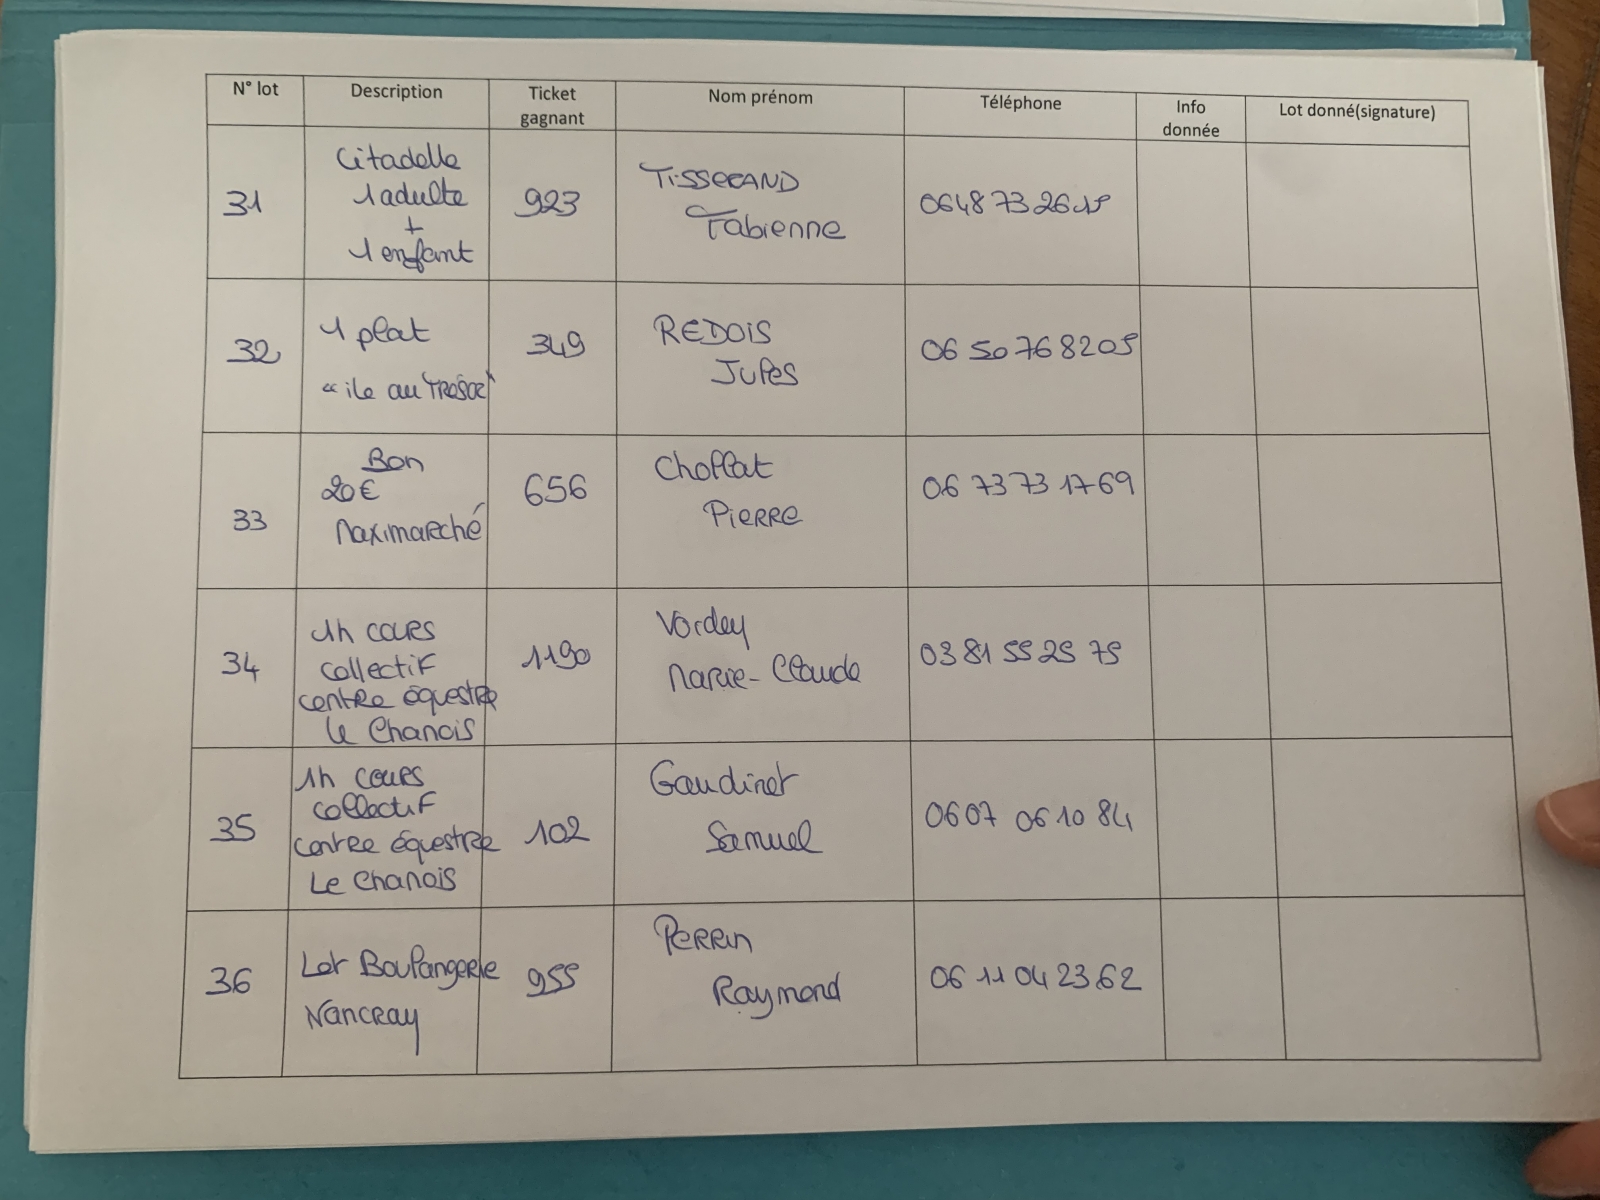 N° lot Description Ticket gagnant Nom prénom Téléphone Info donnée Lot donné(signature)
31
Citadelle
1 adulte
+
1 enfant
923
TISSERAND
Fabienne
0648732619
32
1 plat
"ile au TRESOR"
349
REDOIS
Jules
06 50 76 82 05
33
Bon
20€
Maximarché
656
Chollat
PIERRE
06 73 73 17 69
34
1h cours
collectif
centre équestre
le Chanois
1190
Vordey
Marie-Claude
03 81 55 25 75
35
1h cours
collectif
centre équestre
Le Chanois
102
Gaudinet
Samuel
0607 06 10 84
36
Lot Boulangerie
Nancray
955
PERRIN
Raymond
06 11 04 23 62